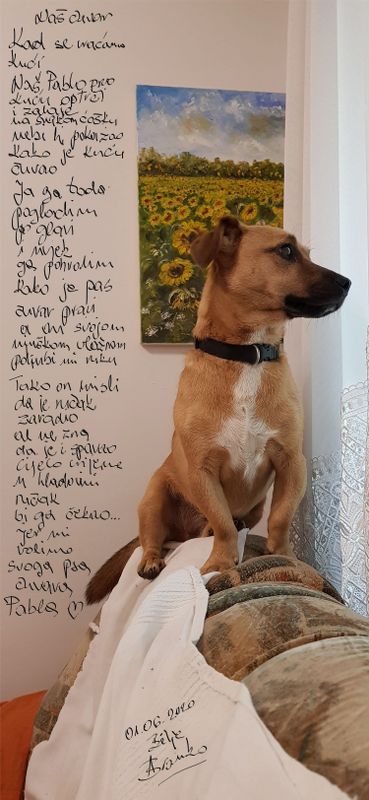 Naš čuvar
Kad se vraćamo
kući
Naš Pablo prvo
kuću optrči
i zalaje
na svakom ćošku
nebi li pokazao
kako je kuću
čuvao
Ja ga tada
po glavi
i uvjek
ga pohvalim
kako je pas
čuvar pravi
a on svojom
njuškom vlažnom
poljubi mi ruku
Tako on misli
da je ručak
zaradio
al ne zna
da je i spavao
cijelo vrijeme
u hladovini
ručak
bi ga čekao...
Jer mi
volimo
svoga psa
čuvara
Pabla ♡
01.06.2020
Bilje
Branko